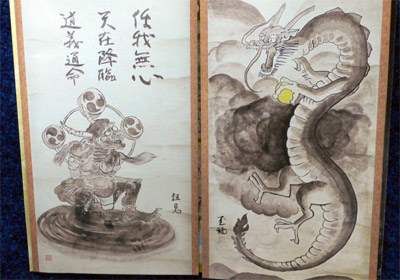 任我無心
天在降臨
道義通命